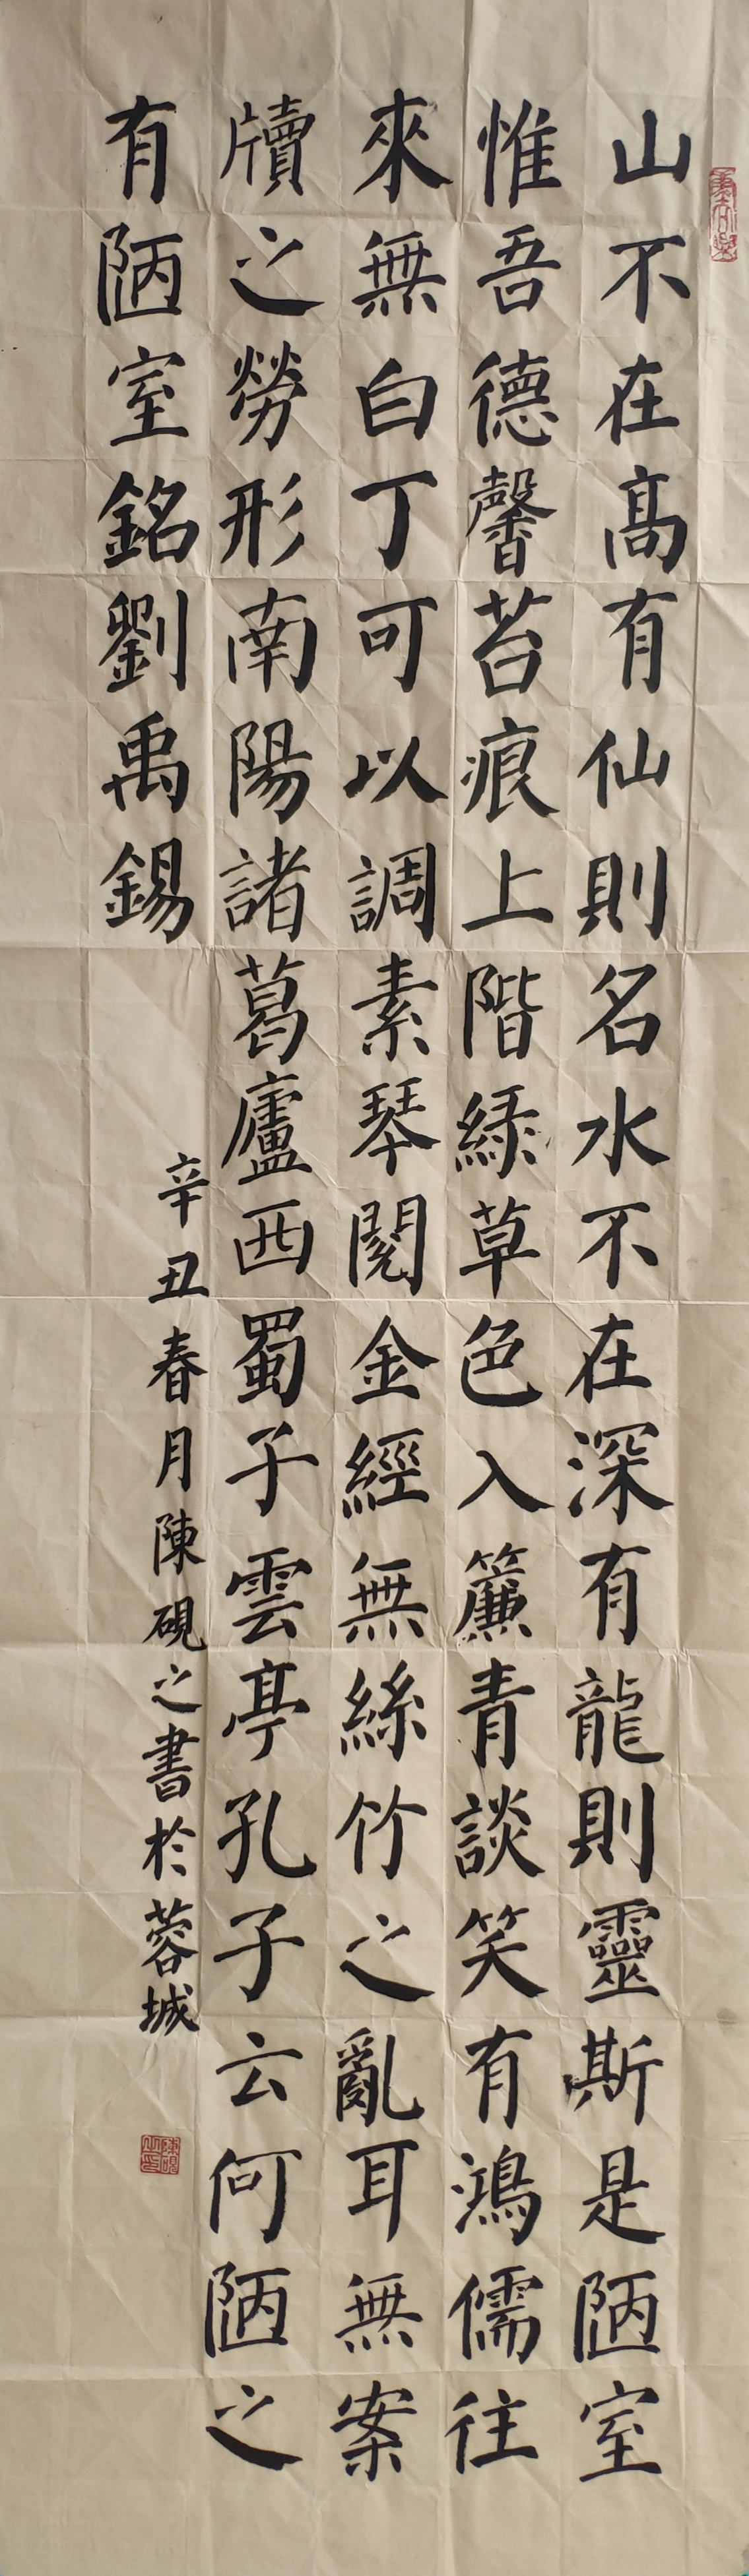 山不在高有仙則名水不在深有龍則靈斯是陋室
惟吾德馨苔痕上階綠草色入簾青談笑有鴻儒往
來無白丁可以調素琴閱金經無絲竹之亂耳無案
牘之勞形南陽諸葛廬西蜀子雲亭孔子云何陋之
有陋室銘劉禹錫
辛丑春月陳硯之書於蓉城